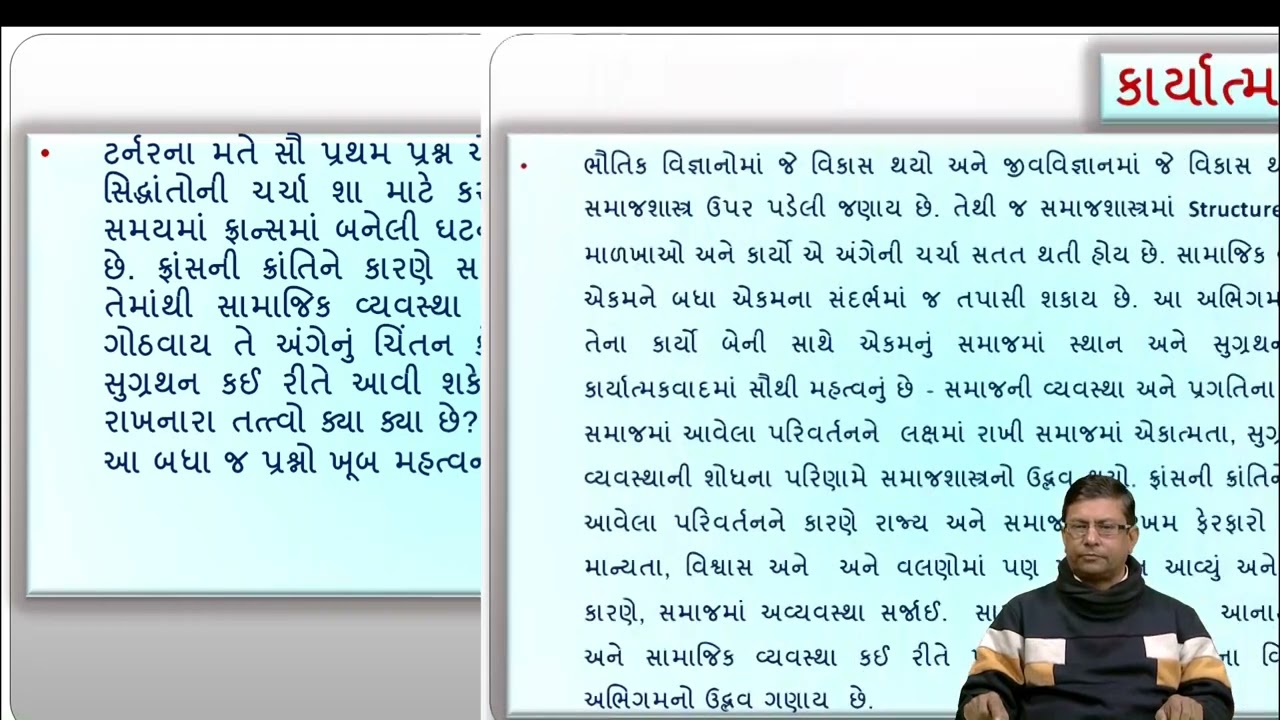 ટર્નરના મતે સૌ પ્રથમ પ્રશ્ન
સિદ્ધાંતોની ચર્ચા શા માટે
સમયમાં ફ્રાન્સમાં બનેલી
છે. ફ્રાંસની ક્રાંતિને કારણે
તેમાંથી સામાજિક વ્યવસ્થા
ગોઠવાય તે અંગેનું ચિંતન
સુગ્રથન કઈ રીતે આવી શકે
રાખનારા તત્ત્વો ક્યા ક્યા છે?
આ બધા જ પ્રશ્નો ખૂબ
કાર્યાત્મ
ભૌતિક વિજ્ઞાનોમાં જે વિકાસ થયો અને જીવવિજ્ઞાનમાં જે વિકાસ
સમાજશાસ્ત્ર ઉપર પડેલી જણાય છે. તેથી જ સમાજશાસ્ત્રમાં Structure
માળખાઓ અને કાર્યો એ અંગેની ચર્ચા સતત થતી હોય છે. સામાજિક
એકમને બધા એકમના સંદર્ભમાં જ તપાસી શકાય છે. આ અભિગમ
તેના કાર્યો બેની સાથે એકમનું સમાજમાં સ્થાન અને સુગ્રથન
કાર્યાત્મકવાદમાં સૌથી મહત્વનું છે - સમાજની વ્યવસ્થા અને પ્રગતિના
સમાજમાં આવેલા પરિવર્તનને લક્ષમાં રાખી સમાજમાં એકાત્મતા,
વ્યવસ્થાની શોધના પરિણામે સમાજશાસ્ત્રનો ઉદ્ભવ થયો. ફ્રાંસની
આવેલા પરિવર્તનને કારણે રાજ્ય અને ફેરફારો
માન્યતા, વિશ્વાસ અને અને વલણોમાં પણ આવ્યું અને
કારણે, સમાજમાં અવ્યવસ્થા સર્જાઈ.
અને સામાજિક વ્યવસ્થા કઈ રીતે
અભિગમનો ઉદ્ભવ ગણાય છે.